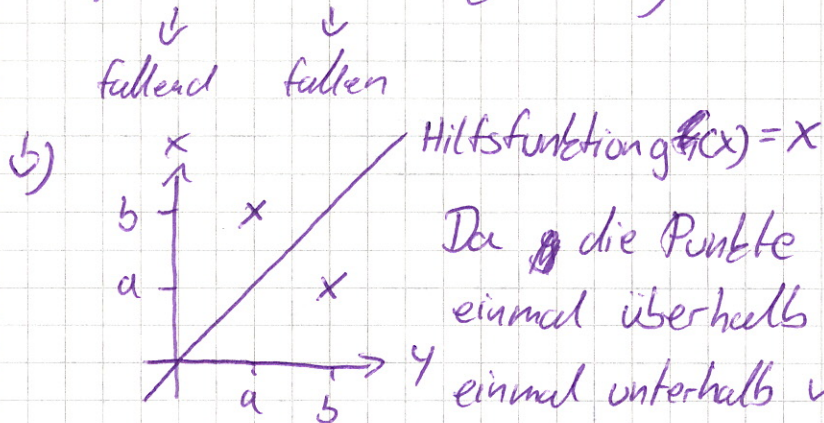 fallend fallen
b)
x
Hilfsfunktion g(x) = x
b
Da die Punkte
a
einmal überhalb
y
einmal unterhalb
a b